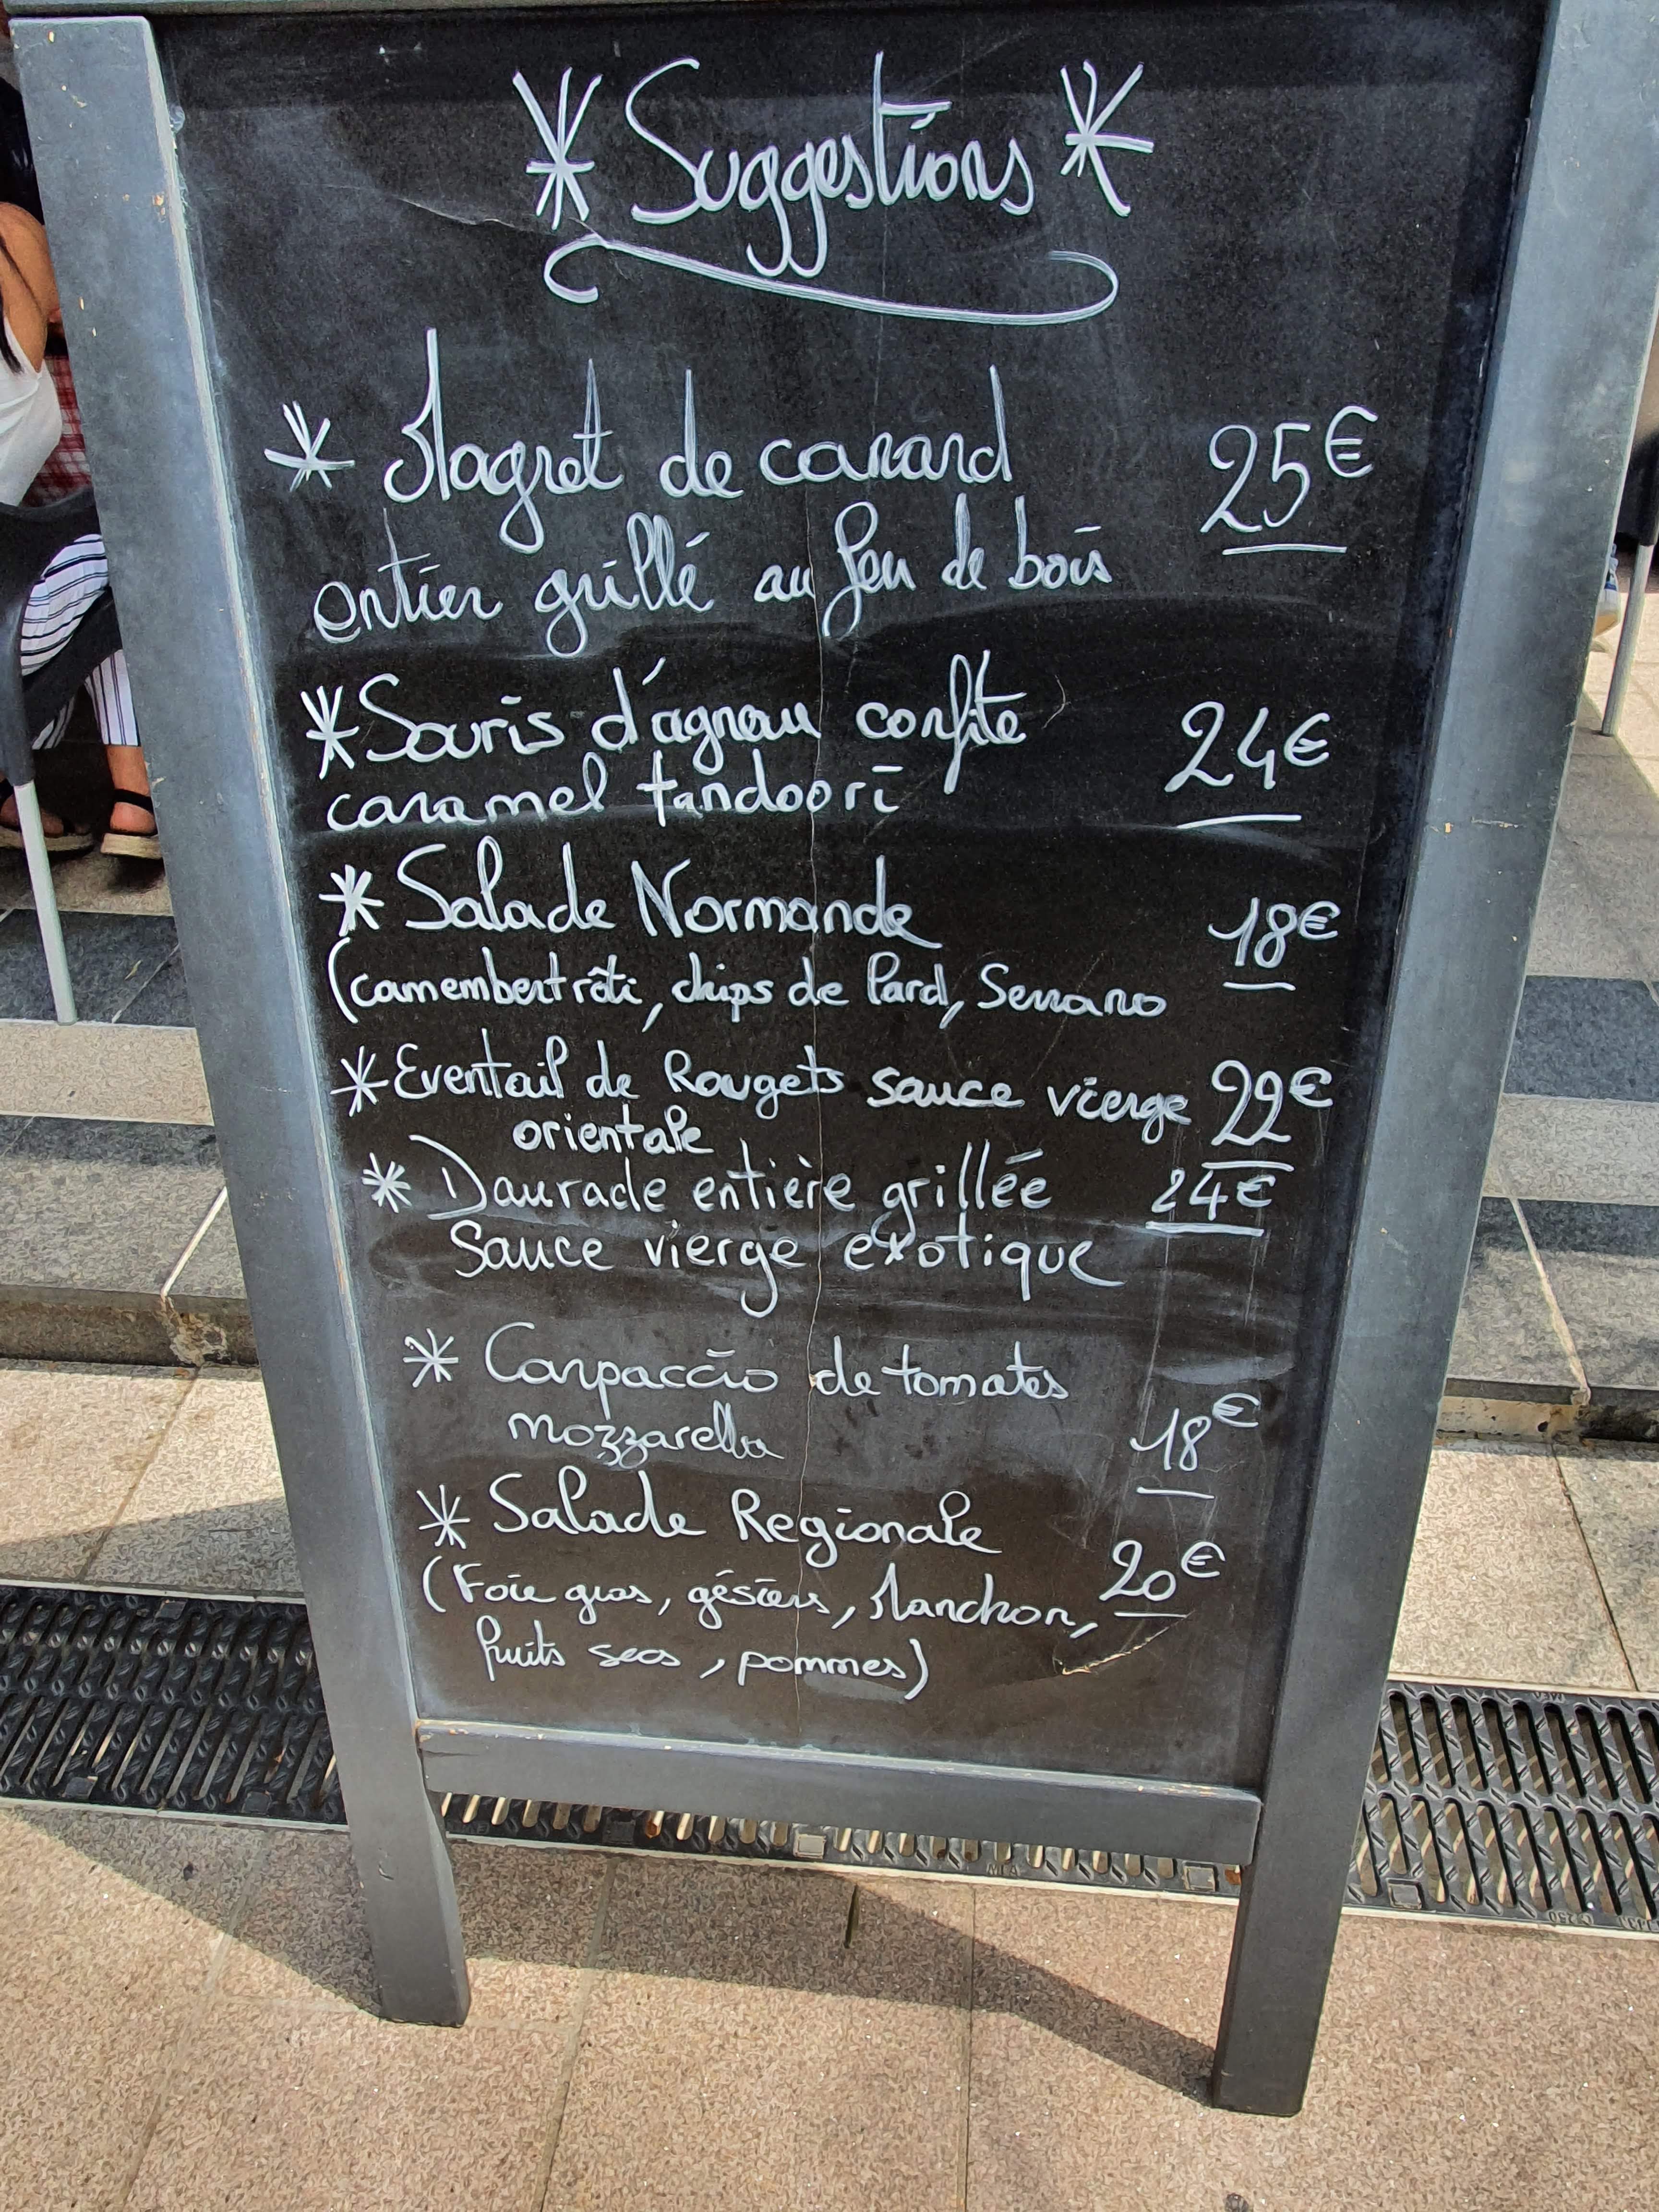 * Suggestions *
* Magret de canard 25€
entier grillé au feu de bois
* Souris d'agneau confite 24€
caramel tandoori
* Salade Normande 18€
(camembert rôti, chips de lard, Serrano
* Eventail de Rougets sauce vierge 22€
orientale
* Daurade entière grillée 24€
Sauce vierge exotique
* Carpaccio de tomates
mozzarella 18€
* Salade Regionale 20€
(Foie gras, gésiers, Manchon,
fruits secs, pommes)